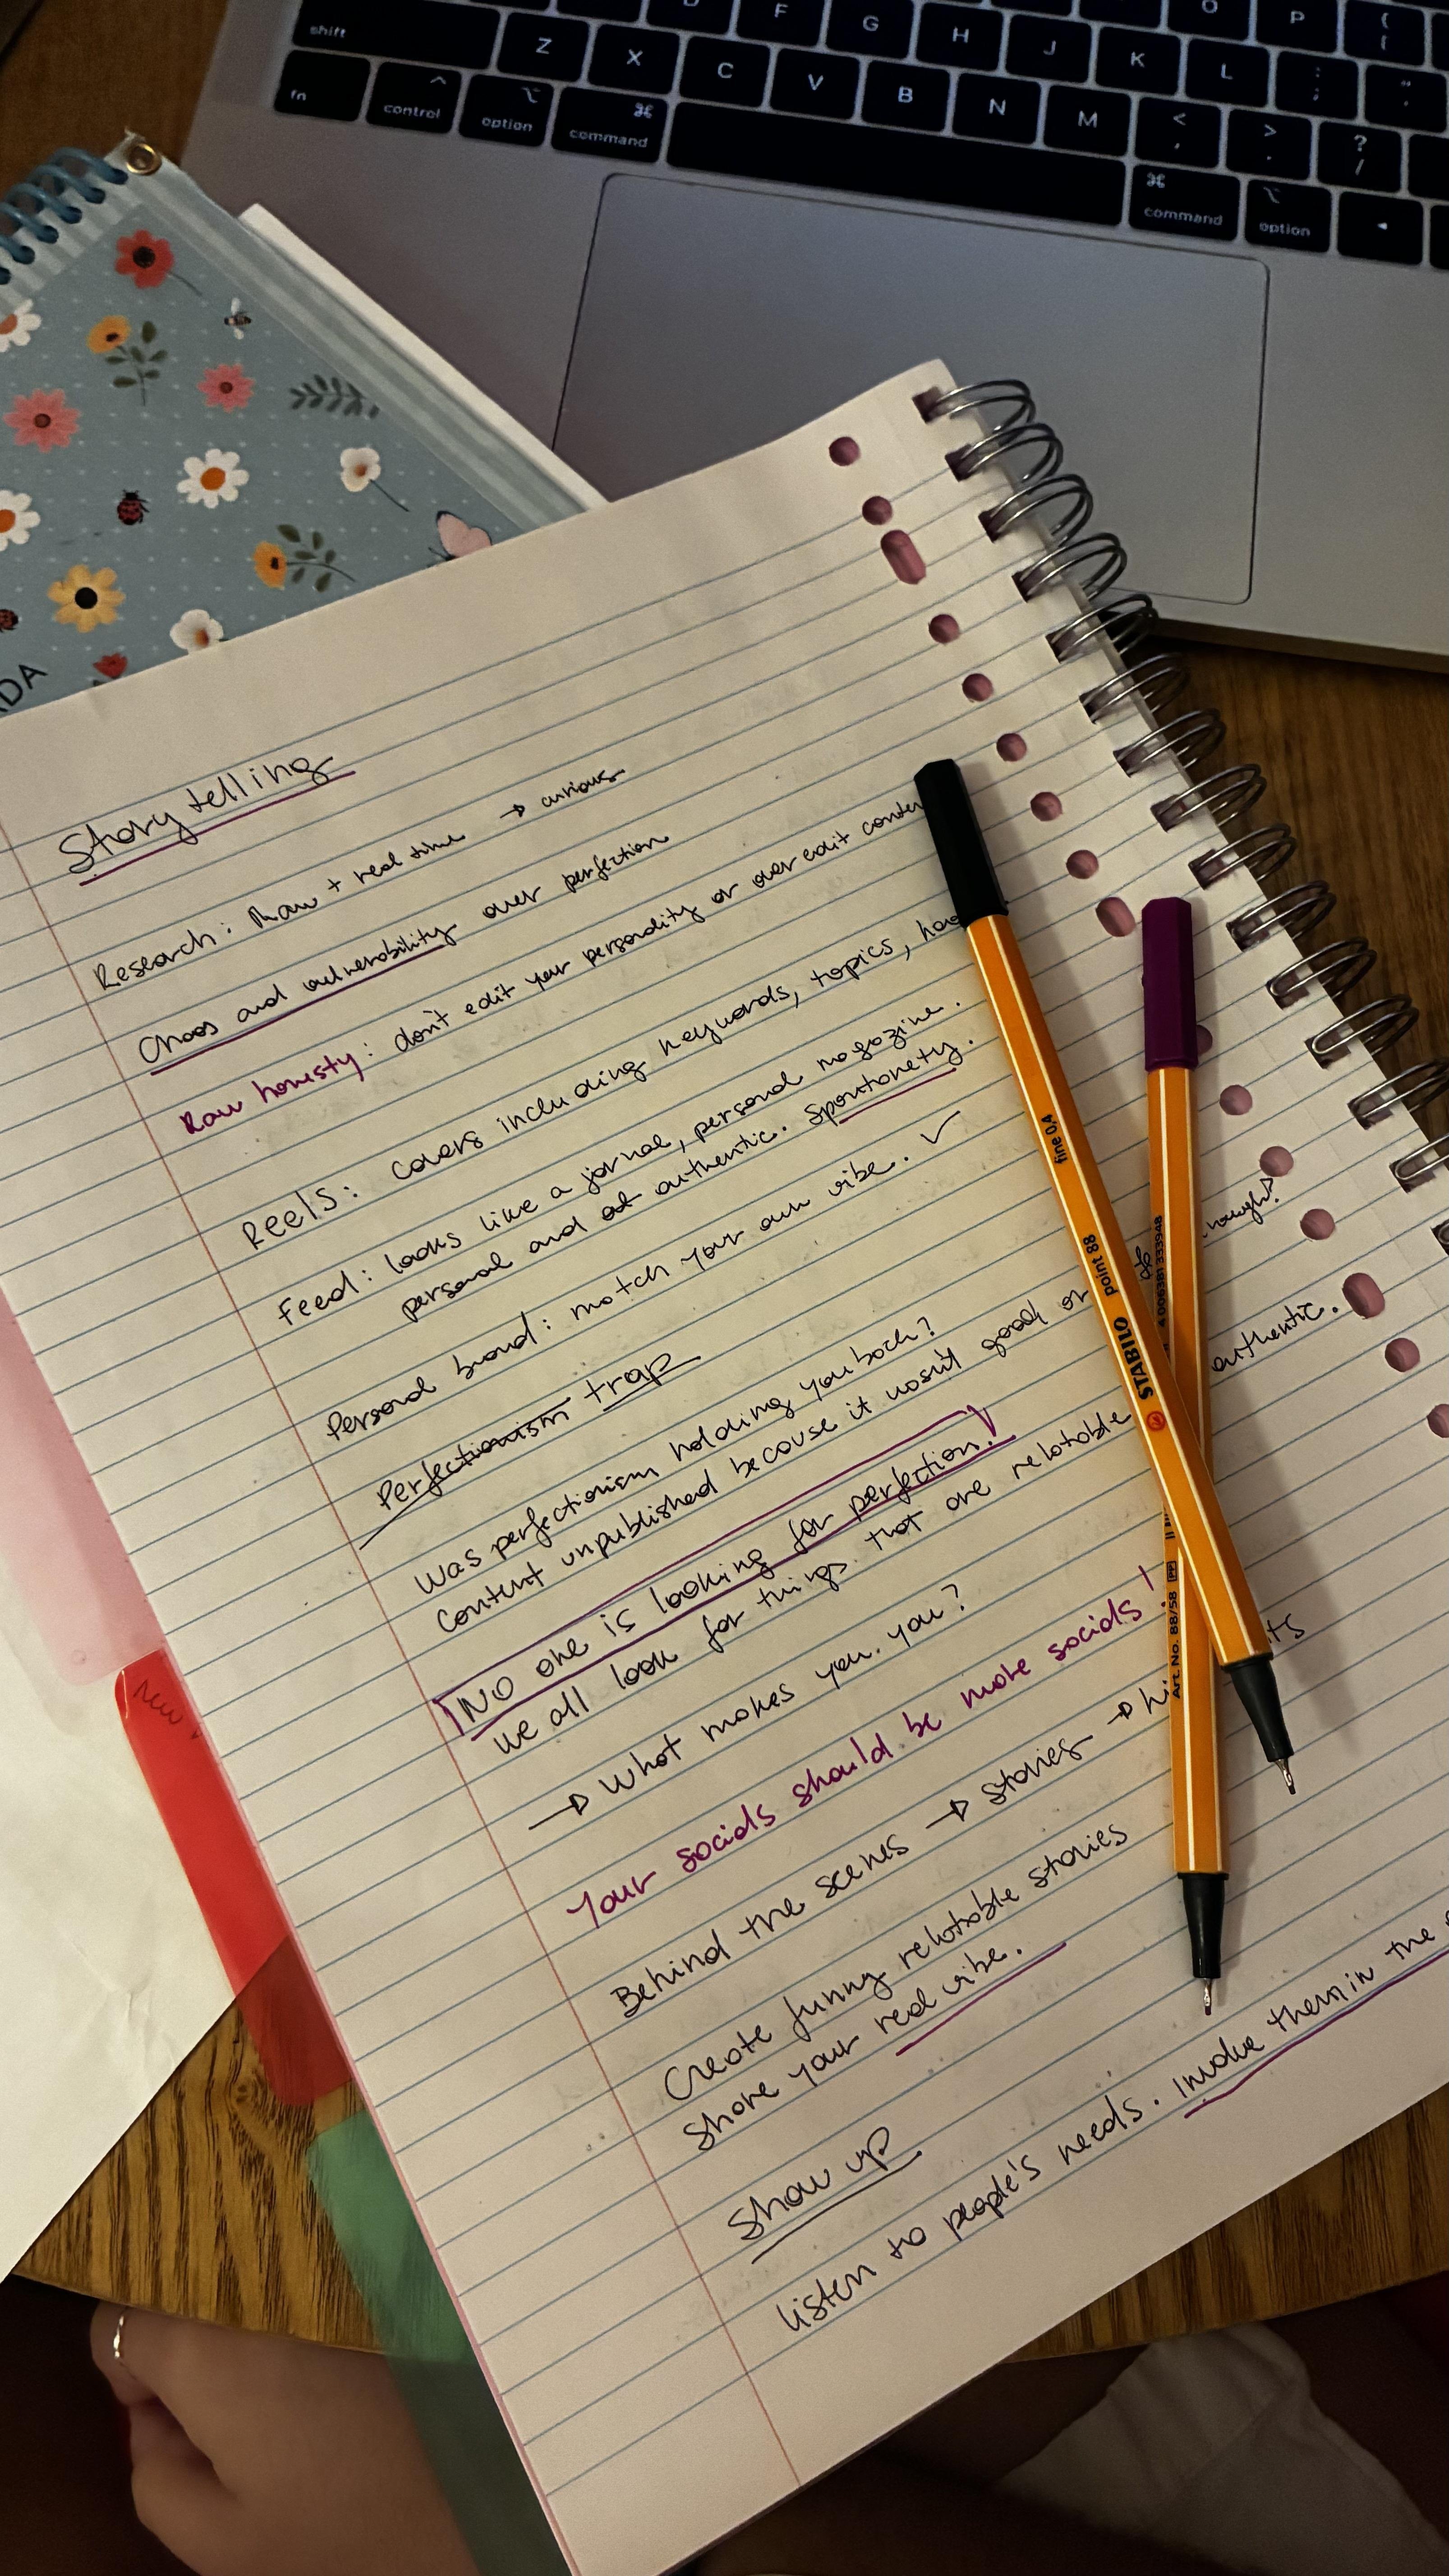 D F G H J K L : ; " ' O P { [
shift Z X C V B N M < , > . ? /
fn control option command command option
DA
Story telling
Research: Raw + real time → curious
Chaos and vulnerability over perfection
Raw honesty: don't edit your personality or over edit conten
Reels: covers including keywords, topics,
Feed: looks like a jornal, personal magazine.
personal and authentic. Spontanety.
Personal brand: match your own vibe. ✓
Perfectionism trap
Was perfectionism holding you back?
Content unpublished because it wasn't good or
No one is looking for perfection!
we all look for things that are relatable authentic.
→ What makes you. you?
Your socials should be more socials!
Behind the scenes → stories →
Create funny relatable stories
Share your real vibe.
Show up
listen to people's needs. Involve them in the
fine 0,4 point 88 STABILO
4 006381 333948
Art. No. 88/58 PP
New